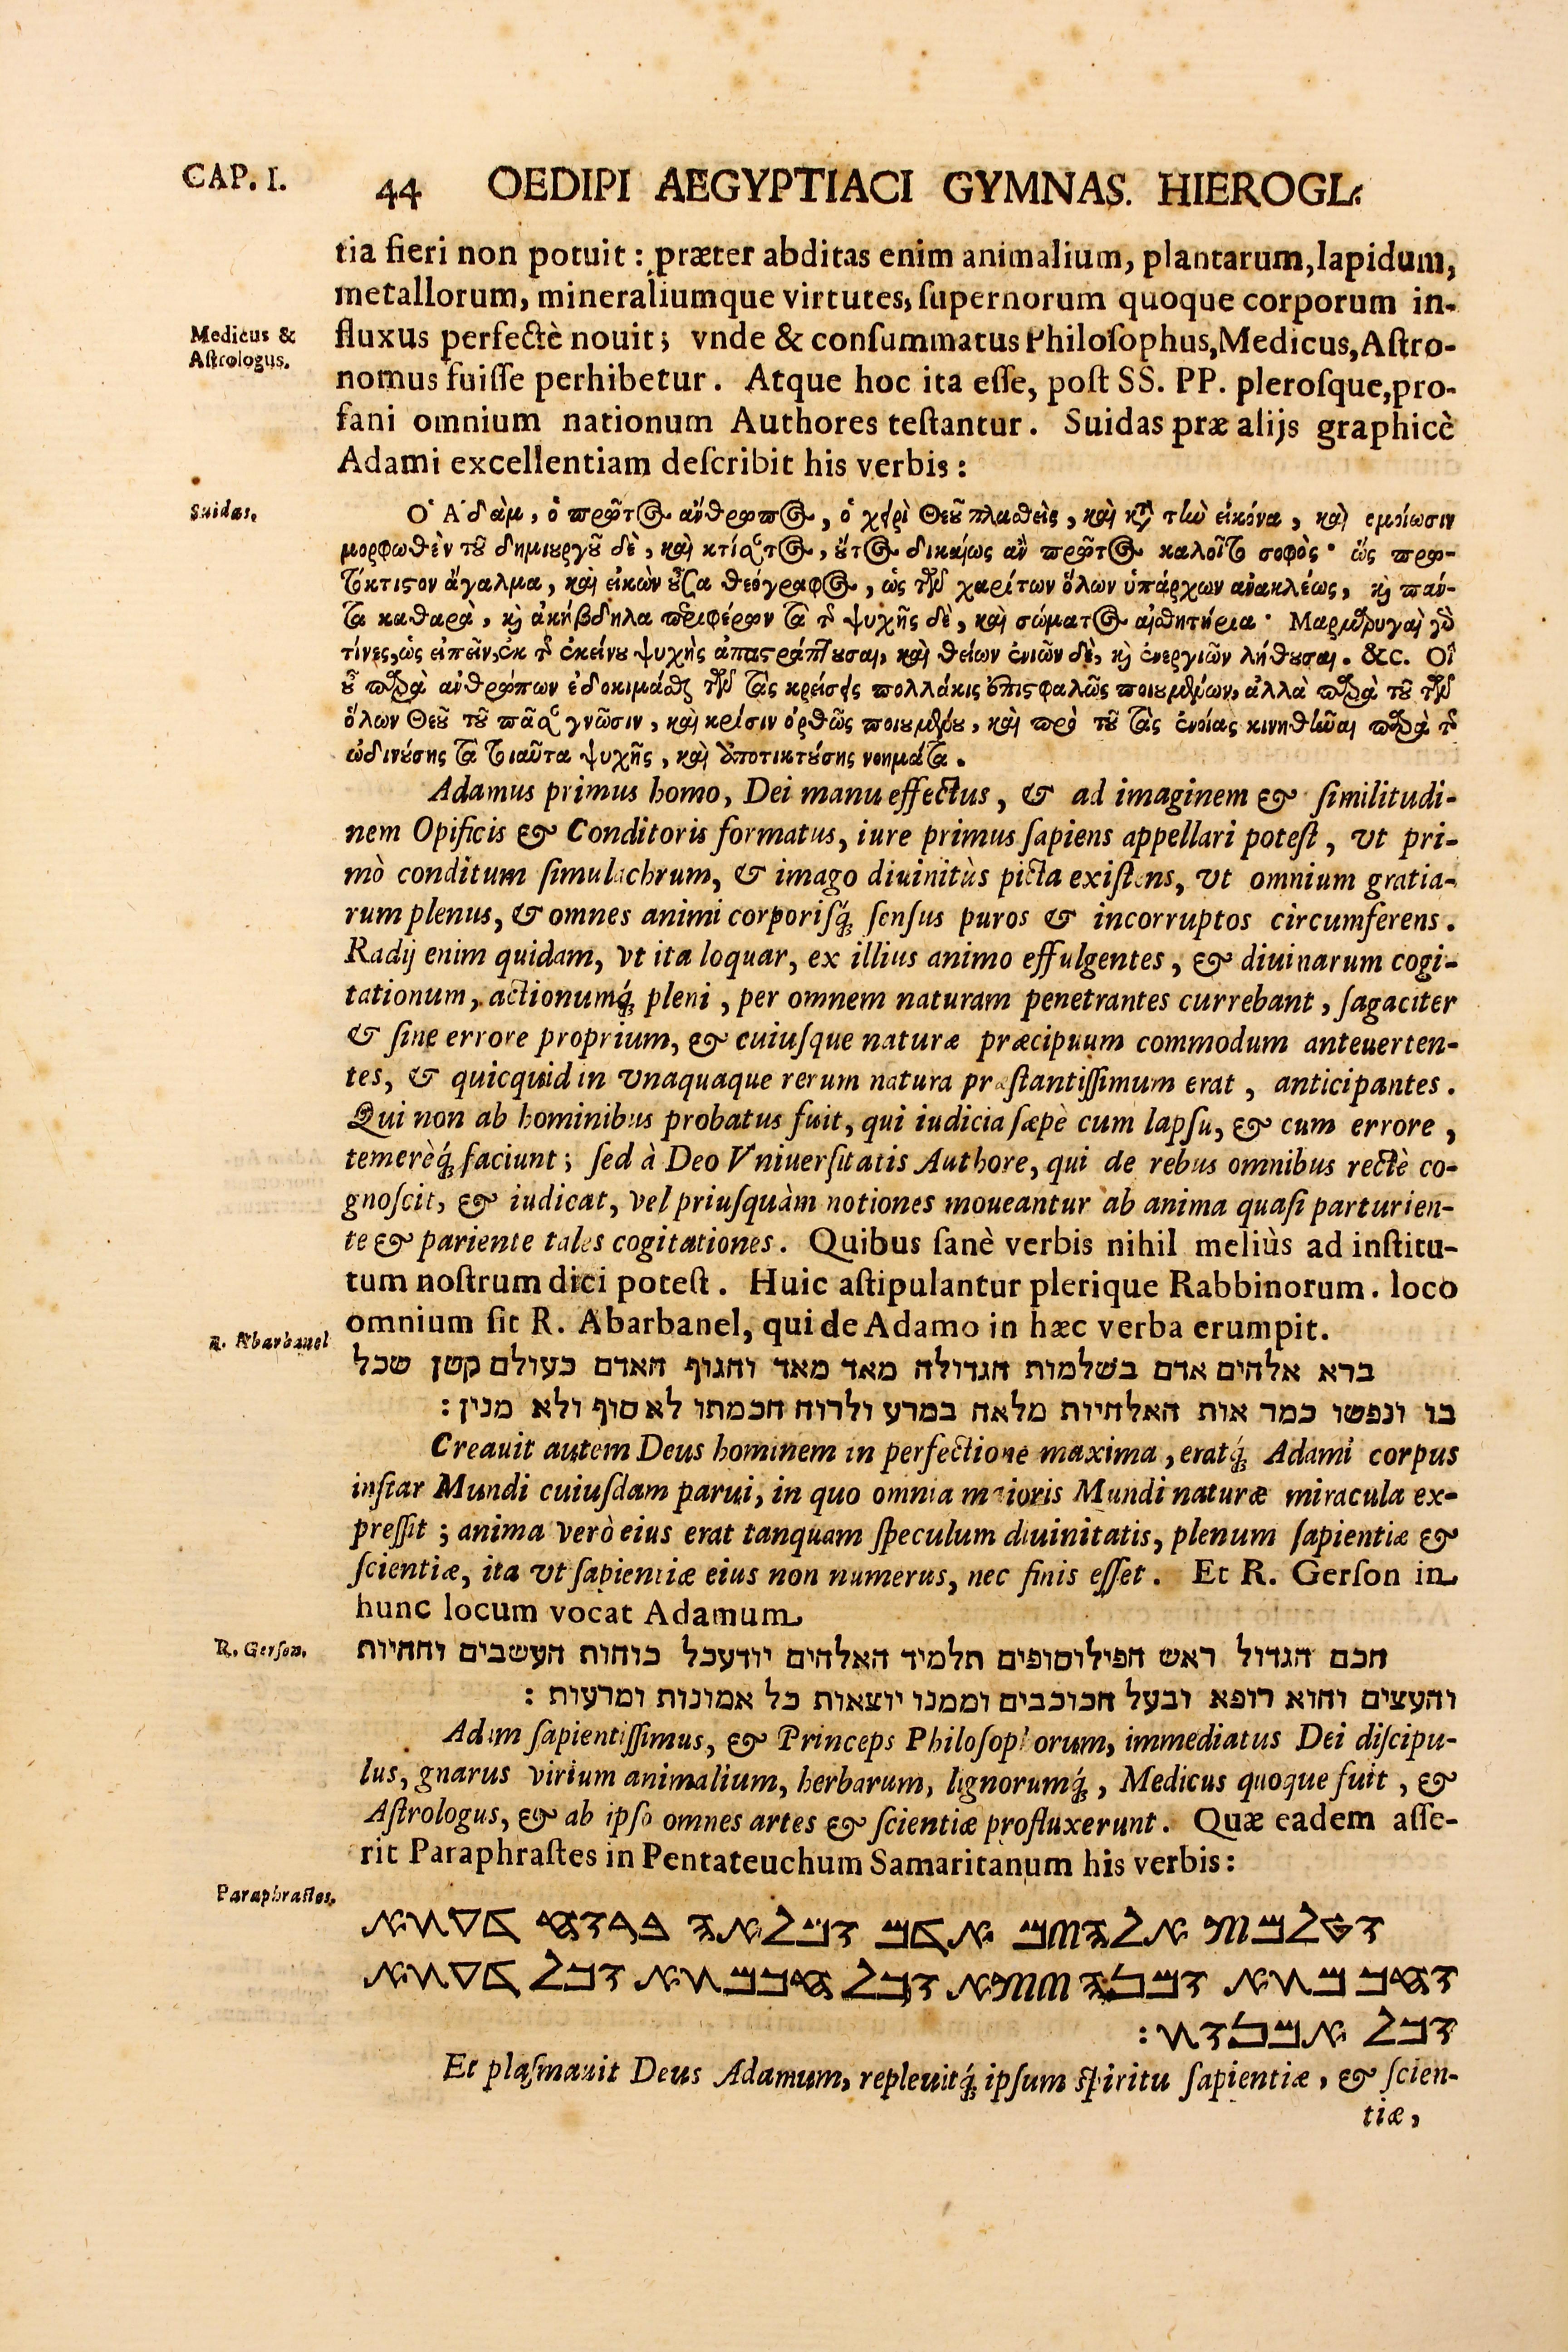 CAP. I.
44 OEDIPI AEGYPTIACI GYMNAS. HIEROGL.
tia fieri non potuit : præter abditas enim animalium, plantarum, lapidum,
metallorum, mineraliumque virtutes, ſupernorum quoque corporum in-
Medicus &
Aſtrologus.
fluxus perfectè nouit; vnde & conſummatus Philoſophus, Medicus, Aſtro-
nomus fuiſſe perhibetur. Atque hoc ita eſſe, poſt SS. PP. pleroſque, pro-
fani omnium nationum Authores teſtantur. Suidas præ alijs graphicè
Adami excellentiam deſcribit his verbis :
Suidas.
Ο᾽ Α᾽δὰμ, ὁ πρῶτος ἄνθρωπος, ὁ χειρὶ Θεοῦ πλασθεὶς, καὶ κατὰ τὴν εἰκόνα, καὶ εμοίωσιν
μορφωθὲν τοῦ δημιουργοῦ δὲ, καὶ κτίσαντος, οὗτος δικαίως ἂν πρῶτος καλοῖτο σοφὸς· ὡς πρω-
τόκτιστον ἄγαλμα, καὶ εἰκὼν οὖσα θεόγραφος, ὡς τῶν χαρίτων ὅλων ὑπάρχων ἀνακλέως, καὶ πάν-
τα καθαρὰ, καὶ ἀκήβδηλα περιφέρων τὰ τῆς ψυχῆς δὲ, καὶ σώματος αἰσθητήρια· Μαρμαρυγαὶ γὰρ
τίνες, ὡς εἰπεῖν, ἐκ τῆς ἐκείνου ψυχῆς ἀπαστράπτουσαι, καὶ θείων ἐνιῶν δὲ, καὶ ἐνεργιῶν λήθουσαι. &c. Οἳ
οὐ παρὰ ἀνθρώπων ἐδοκιμάσθη τῶν τὰς κρείσεις πολλάκις ἐπισφαλῶς ποιουμένων, ἀλλὰ παρὰ τοῦ τῶν
ὅλων Θεοῦ τοῦ πᾶσαν γνῶσιν, καὶ κρίσιν ὀρθῶς ποιουμένου, καὶ πρὸ τοῦ τὰς ἐνοίας κινηθῆναι παρὰ τῆς
ὠδινούσης τὰ τοιαῦτα ψυχῆς, καὶ ἀποτικτούσης νοημάτα.
Adamus primus homo, Dei manu effectus, & ad imaginem & ſimilitudi-
nem Opificis & Conditoris formatus, iure primus ſapiens appellari poteſt, vt pri-
mò conditum ſimulachrum, & imago diuinitùs picta exiſtens, vt omnium gratia-
rum plenus, & omnes animi corporiſq́; ſenſus puros & incorruptos circumferens.
Radij enim quidam, vt ita loquar, ex illius animo effulgentes, & diuinarum cogi-
tationum, actionumq́; pleni, per omnem naturam penetrantes currebant, ſagaciter
& ſine errore proprium, & cuiuſque naturæ præcipuum commodum anteuerten-
tes, & quicquid in vnaquaque rerum natura præſtantiſſimum erat, anticipantes.
Qui non ab hominibus probatus fuit, qui iudicia ſæpè cum lapſu, & cum errore,
temerèq́; faciunt; ſed à Deo Vniuerſitatis Authore, qui de rebus omnibus rectè co-
gnoſcit, & iudicat, vel priuſquàm notiones moueantur ab anima quaſi parturien-
te & pariente tales cogitationes. Quibus ſanè verbis nihil meliùs ad inſtitu-
tum noſtrum dici poteſt. Huic aſtipulantur plerique Rabbinorum. loco
omnium ſit R. Abarbanel, qui de Adamo in hæc verba erumpit.
R. Abarbanel
ברא אלהים אדם בשלמות הגדולה מאד מאד והגוף האדם כעולם קטן שכל
בו ונפשו כמר אות האלהיות מלאה במרע ולרוח חכמתו לא סוף ולא מנין :
Creauit autem Deus hominem in perfectione maxima, eratq́; Adami corpus
inſtar Mundi cuiuſdam parui, in quo omnia maioris Mundi naturæ miracula ex-
preſſit ; anima verò eius erat tanquam ſpeculum diuinitatis, plenum ſapientiæ &
ſcientiæ, ita vt ſapientiæ eius non numerus, nec finis eſſet. Et R. Gerſon in
hunc locum vocat Adamum
R. Gerſon.
חכם הגדול ראש הפילוסופים תלמיד האלהים יודעכל כוחות העשבים והחיות
והעצים והוא רופא ובעל הכוכבים וממנו יוצאות כל אמונות ומדעות :
Adam ſapientiſſimus, & Princeps Philoſophorum, immediatus Dei diſcipu-
lus, gnarus virium animalium, herbarum, lignorumq́;, Medicus quoque fuit, &
Aſtrologus, & ab ipſo omnes artes & ſcientiæ profluxerunt. Quæ eadem aſſe-
rit Paraphraſtes in Pentateuchum Samaritanum his verbis :
Paraphraſtes.
Et plaſmauit Deus Adamum, repleuitq́; ipſum ſpiritu ſapientiæ, & ſcien-
tiæ,